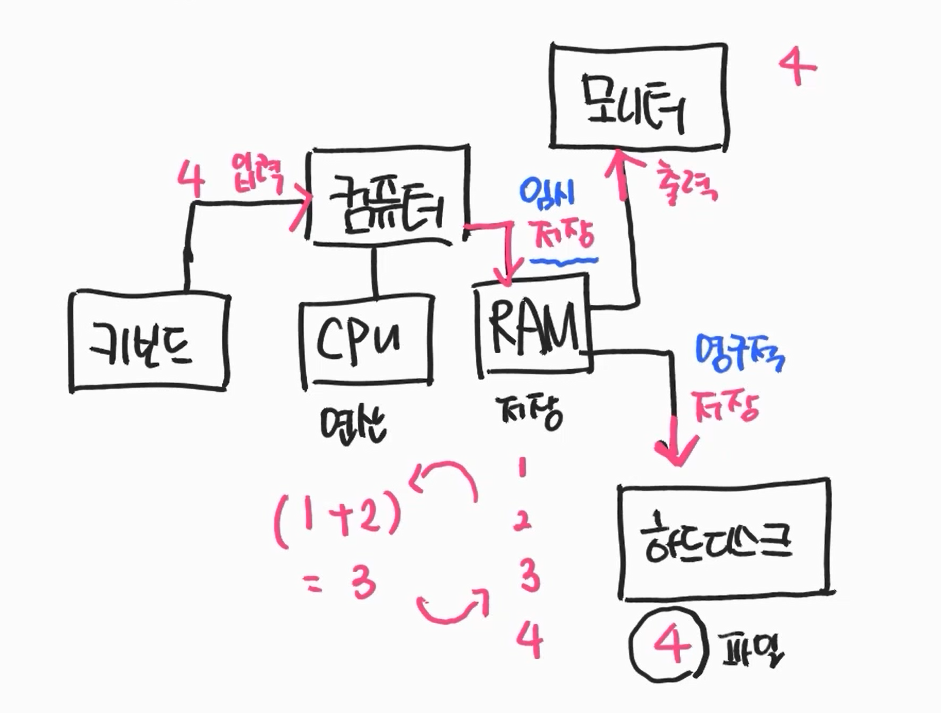 모니터
4
4 입력
컴퓨터
임시
저장
출력
키보드
CPU
RAM
연산
저장
영구적
저장
(1+2)
= 3
1
2
3
4
하드디스크
4 파일